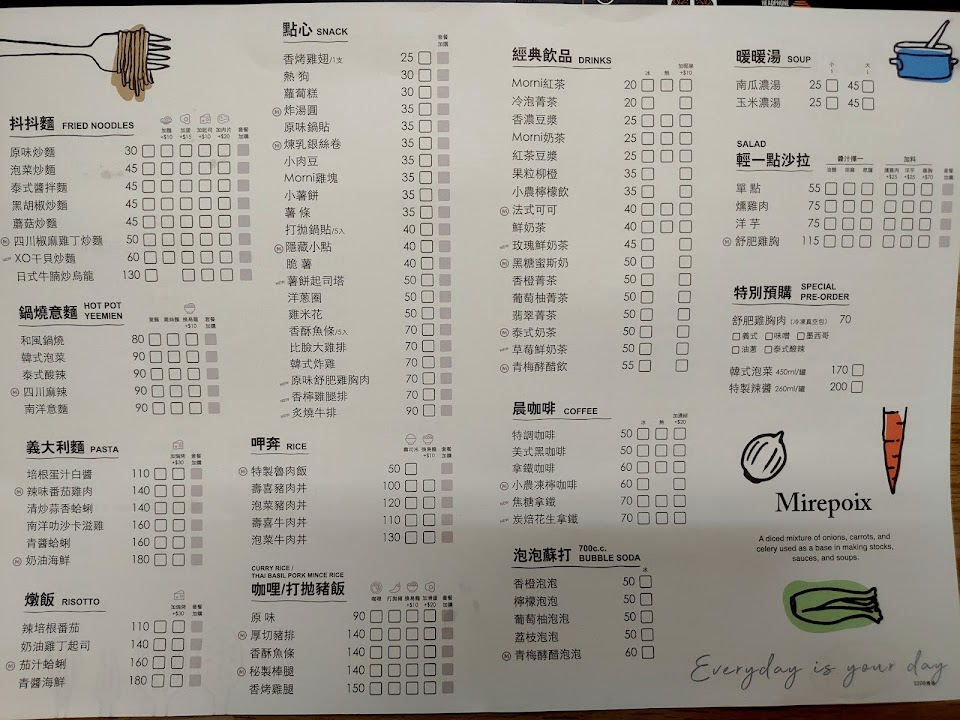 抖抖麵 FRIED NOODLES
加麵 +$10 加蛋 +$15 加起司 +$10 加肉片 +$20 套餐加購
原味炒麵 30
泡菜炒麵 45
泰式醬拌麵 45
黑胡椒炒麵 45
蘑菇炒麵 45
四川椒麻雞丁炒麵 50
XO干貝炒麵 60
日式牛腩炒烏龍 130
鍋燒意麵 HOT POT YEEMIEN
意麵 雞絲麵 換烏龍 +$10 套餐加購
和風鍋燒 80
韓式泡菜 90
泰式酸辣 90
四川麻辣 90
南洋意麵 90
義大利麵 PASTA
加焗烤 +$30 套餐加購
培根蛋汁白醬 110
辣味番茄雞肉 140
清炒蒜香蛤蜊 140
南洋叻沙卡滋雞 160
青醬蛤蜊 160
奶油海鮮 180
燉飯 RISOTTO
加焗烤 +$30 套餐加購
辣培根番茄 110
奶油雞丁起司 140
茄汁蛤蜊 160
青醬海鮮 180
點心 SNACK
套餐加購
香烤雞翅/1支 25
熱狗 30
蘿蔔糕 30
炸湯圓 35
原味鍋貼 35
煉乳銀絲卷 35
小肉豆 35
Morni雞塊 35
小薯餅 35
薯條 35
打拋鍋貼/5入 40
隱藏小點 40
脆薯 40
薯餅起司塔 50
洋蔥圈 50
雞米花 50
香酥魚條/5入 70
比臉大雞排 70
韓式炸雞 70
原味舒肥雞胸肉 70
香檸雞腿排 70
炙燒牛排 90
呷奔 RICE
套餐加購
特製魯肉飯 50
壽喜豬肉丼 100
泡菜豬肉丼 120
壽喜牛肉丼 110
泡菜牛肉丼 130
CURRY RICE /
THAI BASIL PORK MINCE RICE
咖哩/打拋豬飯
咖哩 打拋豬 換烏龍 +$10 +$20 套餐加購
原味 90
厚切豬排 140
香酥魚條 140
秘製棒腿 140
香烤雞腿 150
經典飲品 DRINKS
冰 熱 +$10
Morni紅茶 20
冷泡菁茶 20
香濃豆漿 25
Morni奶茶 25
紅茶豆漿 25
果粒柳橙 35
小農檸檬飲 35
法式可可 40
鮮奶茶 40
玫瑰鮮奶茶 45
黑糖蜜斯奶 50
香橙菁茶 50
葡萄柚菁茶 50
翡翠菁茶 50
泰式奶茶 50
草莓鮮奶茶 50
青梅酵醋飲 55
晨咖啡 COFFEE
冰 熱 +$20
特調咖啡 50
美式黑咖啡 50
拿鐵咖啡 60
小農凍檸咖啡 60
焦糖拿鐵 70
炭焙花生拿鐵 70
泡泡蘇打 700c.c. BUBBLE SODA
冰
香橙泡泡 50
檸檬泡泡 50
葡萄柚泡泡 50
荔枝泡泡 50
青梅酵醋泡泡 60
暖暖湯 SOUP
小 大
南瓜濃湯 25 45
玉米濃湯 25 45
SALAD
輕一點沙拉
醬汁擇一 加料
單點 55
燻雞肉 75
洋芋 75
舒肥雞胸 115
特別預購 SPECIAL PRE-ORDER
舒肥雞胸肉(冷凍真空包) 70
義式 味噌 墨西哥
油蔥 泰式酸辣
韓式泡菜 450ml/罐 170
特製辣醬 260ml/罐 200
Mirepoix
A diced mixture of onions, carrots, and
celery used as a base in making stocks,
sauces, and soups.
Everyday is your day